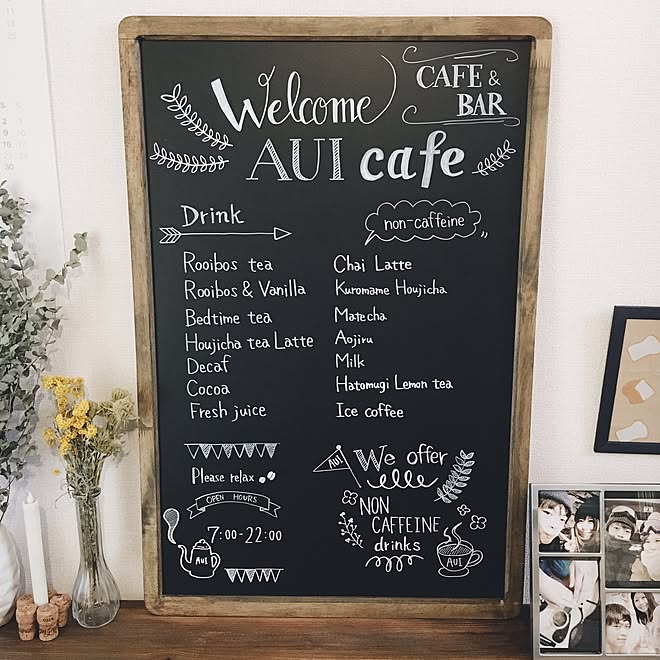 Welcome
CAFE &
BAR
AUI cafe
Drink
non-caffeine
Rooibos tea
Rooibos & Vanilla
Bedtime tea
Houjicha tea Latte
Decaf
Cocoa
Fresh juice
Chai Latte
Kuromame Houjicha
Matecha
Aojiru
Milk
Hatomugi Lemon tea
Ice coffee
Please relax
OPEN HOURS
7:00-22:00
AUI
AUI
We offer
NON
CAFFEINE
drinks
AUI